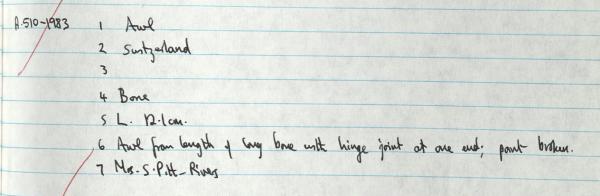 A.510-1983 1 Awl
2 Switzerland
3
4 Bone
5 L. 12.1cm.
6 Awl from length of long bone with hinge joint at one end; point broken.
7 Mrs. S. Pitt-Rivers